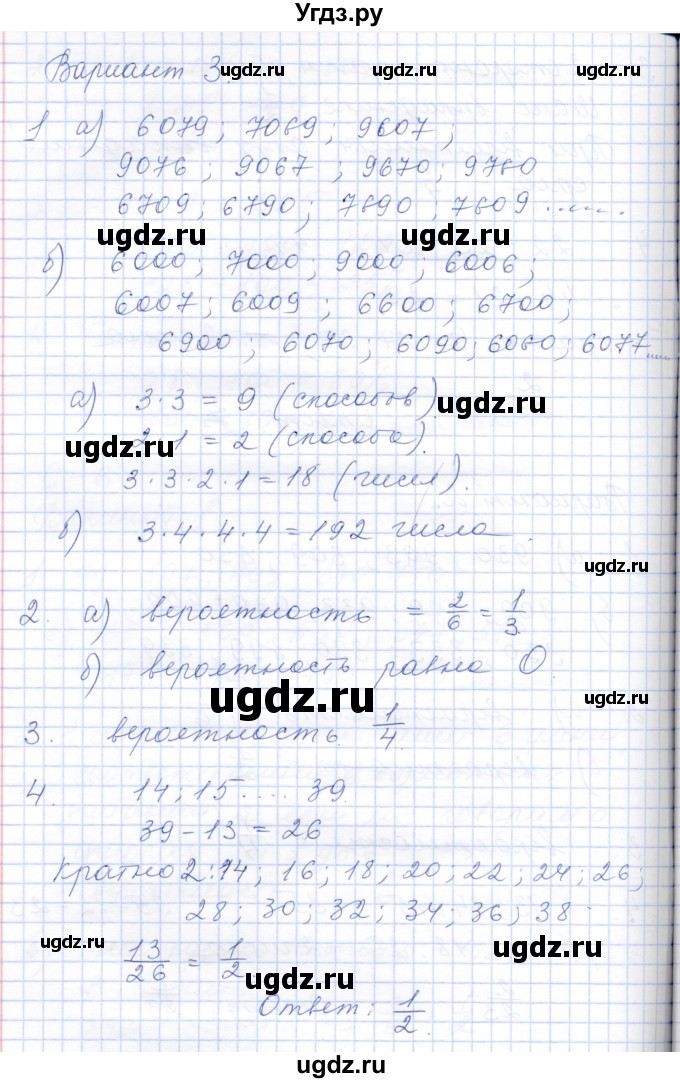 Угдз.ру
Вариант 3.
ugdz.ru ugdz.ru
1 а) 6079; 7069; 9607;
9076; 9067; 9670; 9760
ugdz.ru
6709; 6790; 7690; 7609......
ugdz.ru ugdz.ru
б) 6000; 7000; 9000; 6006;
6007; 6009; 6600; 6700;
6900; 6070; 6090; 6060; 6077....
а) 3·3 = 9 (способов).
ugdz.ru
2·1 = 2 (способа).
ugdz.ru
3·3·2·1 = 18 (чисел).
б) 3·4·4·4 = 192 числа.
ugdz.ru
2. а) вероятность = 2/6 = 1/3.
б) вероятность равна 0.
ugdz.ru ugdz.ru
3. вероятность 1/4.
4. 14; 15.... 39.
39 - 13 = 26
Кратно 2: 14; 16; 18; 20; 22; 24; 26;
28; 30; 32; 34; 36; 38
ugdz.ru ugdz.ru
13/26 = 1/2
ugdz.ru
Ответ: 1/2.
ugdz.ru